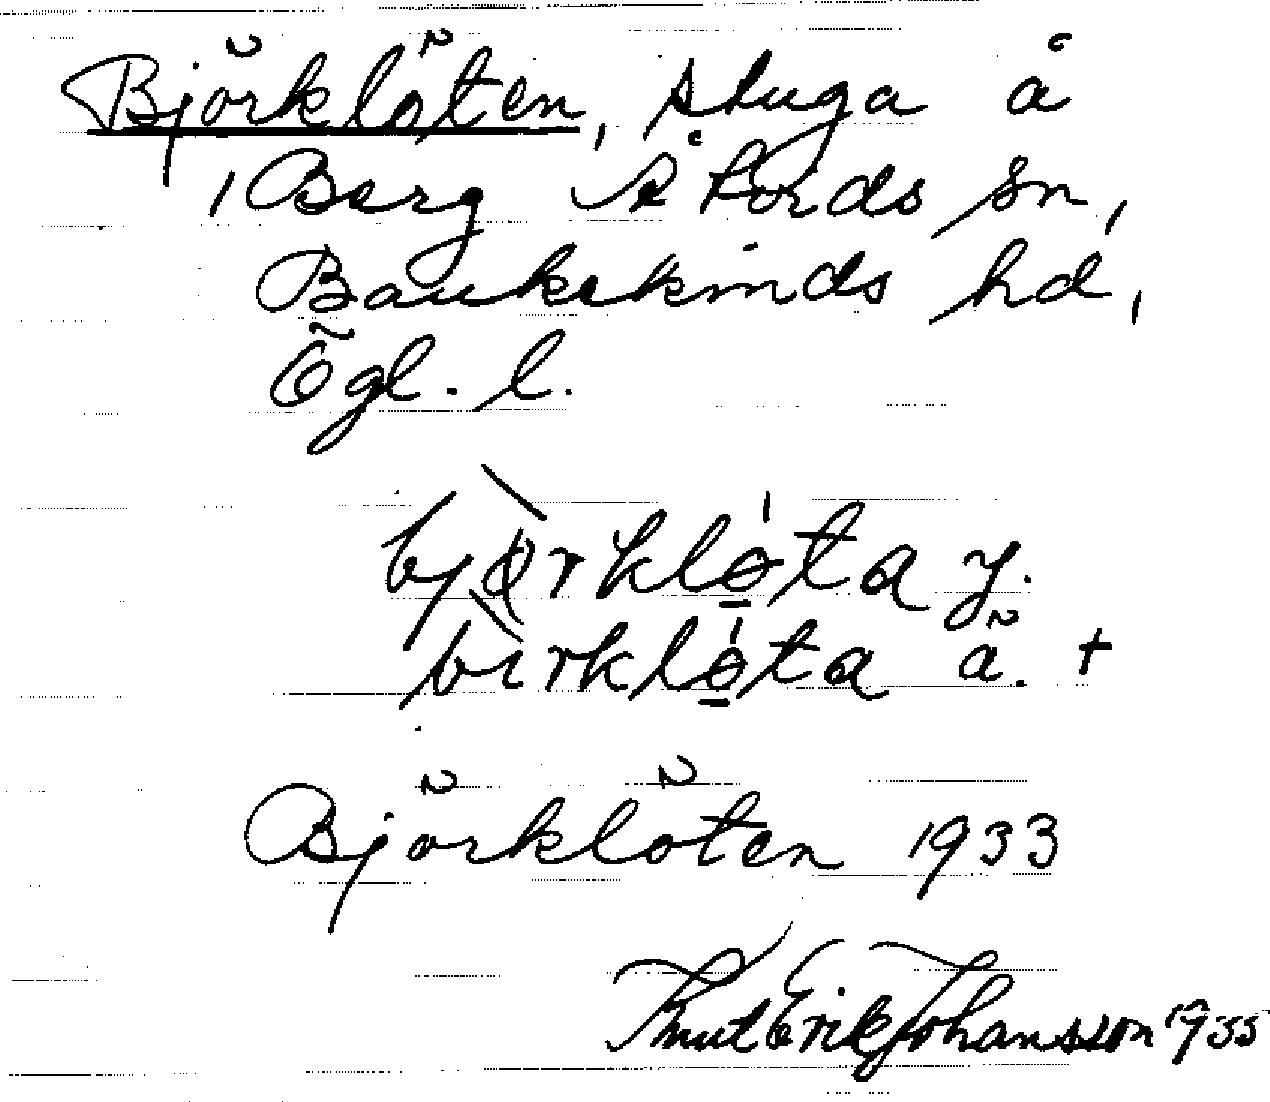 Björklöten, stuga å
Berg Å torids sn,
Bankekinds hd,
Ögl. l.
bjørklöta y.
birklöta ä. +
Björklöten 1933
Knut Erik Johansson 1935